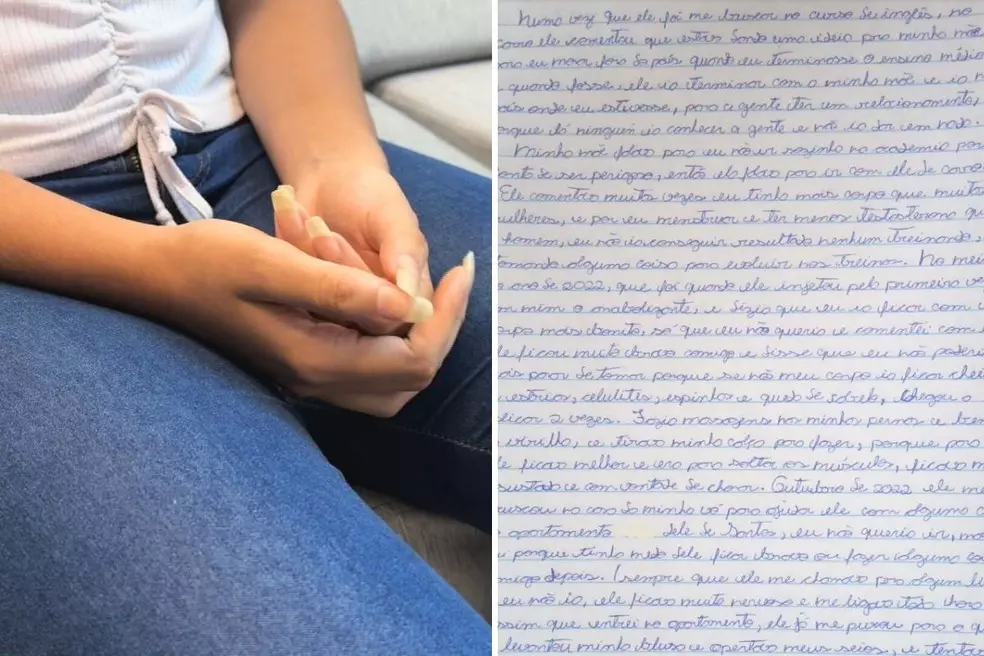 Numa vez que ele foi me buscar no curso de inglês, no
carro ele comentou que estava dando uma ideia para minha mãe
para eu morar fora do país quando eu terminasse o ensino médio
quando fosse, ele ia terminar com a minha mãe e ia
onde eu estivesse, para a gente ter um relacionamento,
porque lá ninguém ia conhecer a gente e não ia dar em nada.
Minha mãe falava para eu não ir sozinha na academia por
conta de ser perigoso, então ela falava para ir com ele de carro.
Ele comentava muitas vezes eu tinha mais corpo que muitas
mulheres, e por eu menstruar e ter menos testosterona que
homem, eu não ia conseguir resultado nenhum treinando,
tomando alguma coisa para evoluir nos treinos. No meio
ano de 2022, que foi quando ele injetou pela primeira vez
em mim o anabolizante, e dizia que eu ia ficar com
corpo mais bonito, só que eu não queria e comentei com
ele ficou muito bravo comigo e disse que eu não poderia
parar de tomar porque se não meu corpo ia ficar cheio
estrias, celulites, espinhas e queda de cabelo, chegou a
aplicar 2 vezes. Fazia massagens na minha perna e
virilha, e tirava minha calça para fazer, porque para
ele ficava melhor e era para soltar os músculos, ficava
assustada e com vontade de chorar. Outubro de 2022 ele me
buscou na casa da minha vó para ajudar ele com alguma
apartamento dele de Santos, eu não queria ir, mas
porque tinha medo dele ficar bravo ou fazer alguma
comigo depois. (sempre que ele me chamava para algum
eu não ia, ele ficava muito nervoso e me ligava toda hora
assim que entrei no apartamento, ele já me puxou para o
levantou minha blusa e apertou meus seios, e tentou